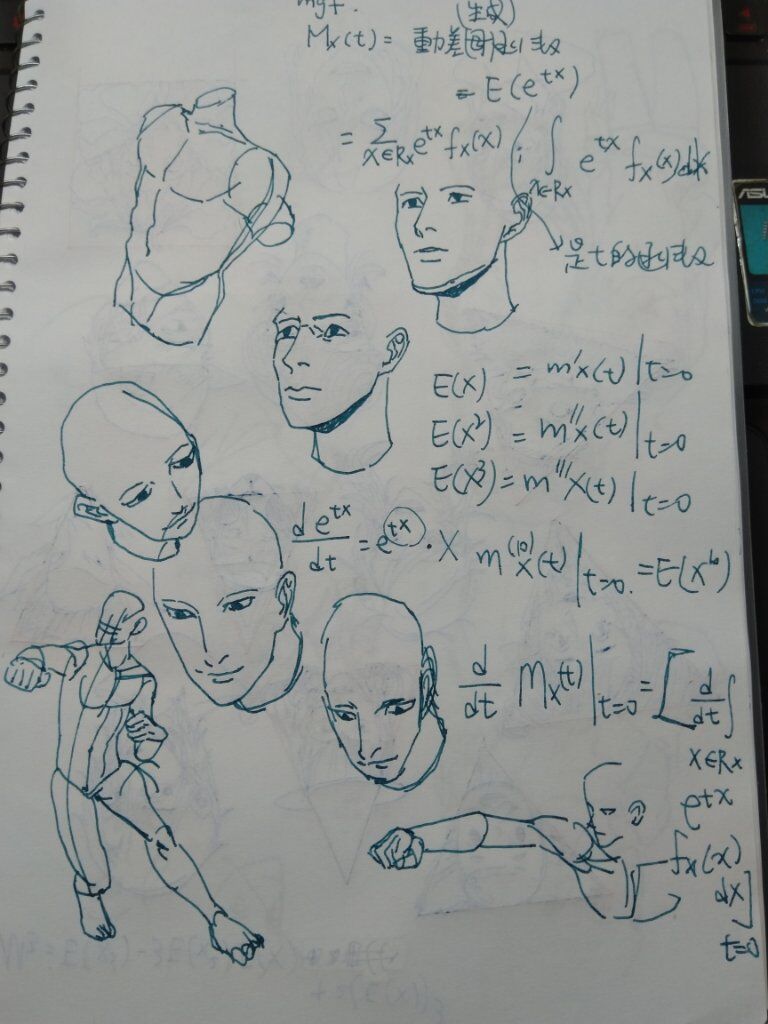 mgf.
(生成)
Mx(t) = 動差母函數
= E(e^tx)
= Σ x∈Rx e^tx fx(x) ; ∫ x∈Rx e^tx fx(x)dx
是t的函數
E(x) = m'x(t)|t=0
E(x²) = m''x(t)|t=0
E(x³) = m'''x(t)|t=0
d e^tx / dt = e^tx · x
m^(10)x(t)|t=0. = E(x^10)
d/dt Mx(t)|t=0 = [d/dt ∫ x∈Rx
e^tx
fx(x)
dx]
t=0
ASU